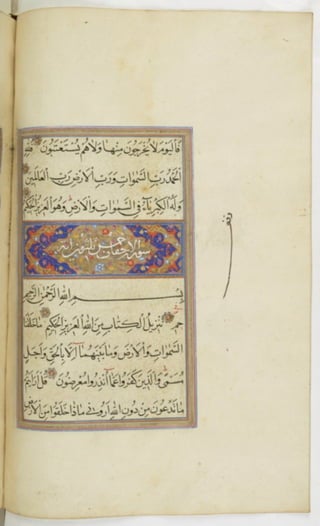 فَالْيَوْمَ لَا يُخْرَجُونَ مِنْهَا وَلَا هُمْ يُسْتَعْتَبُونَ فَلِلَّهِ
الْحَمْدُ رَبِّ السَّمٰوَاتِ وَرَبِّ الْاَرْضِ رَبِّ الْعَالَمِينَ
وَلَهُ الْكِبْرِيَاءُ فِي السَّمٰوَاتِ وَالْاَرْضِ وَهُوَ الْعَزِيزُ الْحَكِيمُ
سورة الاحقاف خمس
بِسْمِ اللهِ الرَّحْمٰنِ الرَّحِيمِ
حم تَنْزِيلُ الْكِتَابِ مِنَ اللهِ الْعَزِيزِ الْحَكِيمِ مَا خَلَقْنَا
السَّمٰوَاتِ وَالْاَرْضَ وَمَا بَيْنَهُمَا اِلَّا بِالْحَقِّ وَاَجَلٍ
مُسَمًّى وَالَّذِينَ كَفَرُوا عَمَّا اُنْذِرُوا مُعْرِضُونَ قُلْ اَرَاَيْتُمْ
مَا تَدْعُونَ مِنْ دُونِ اللهِ اَرُونِي مَاذَا خَلَقُوا مِنَ الْاَرْضِ